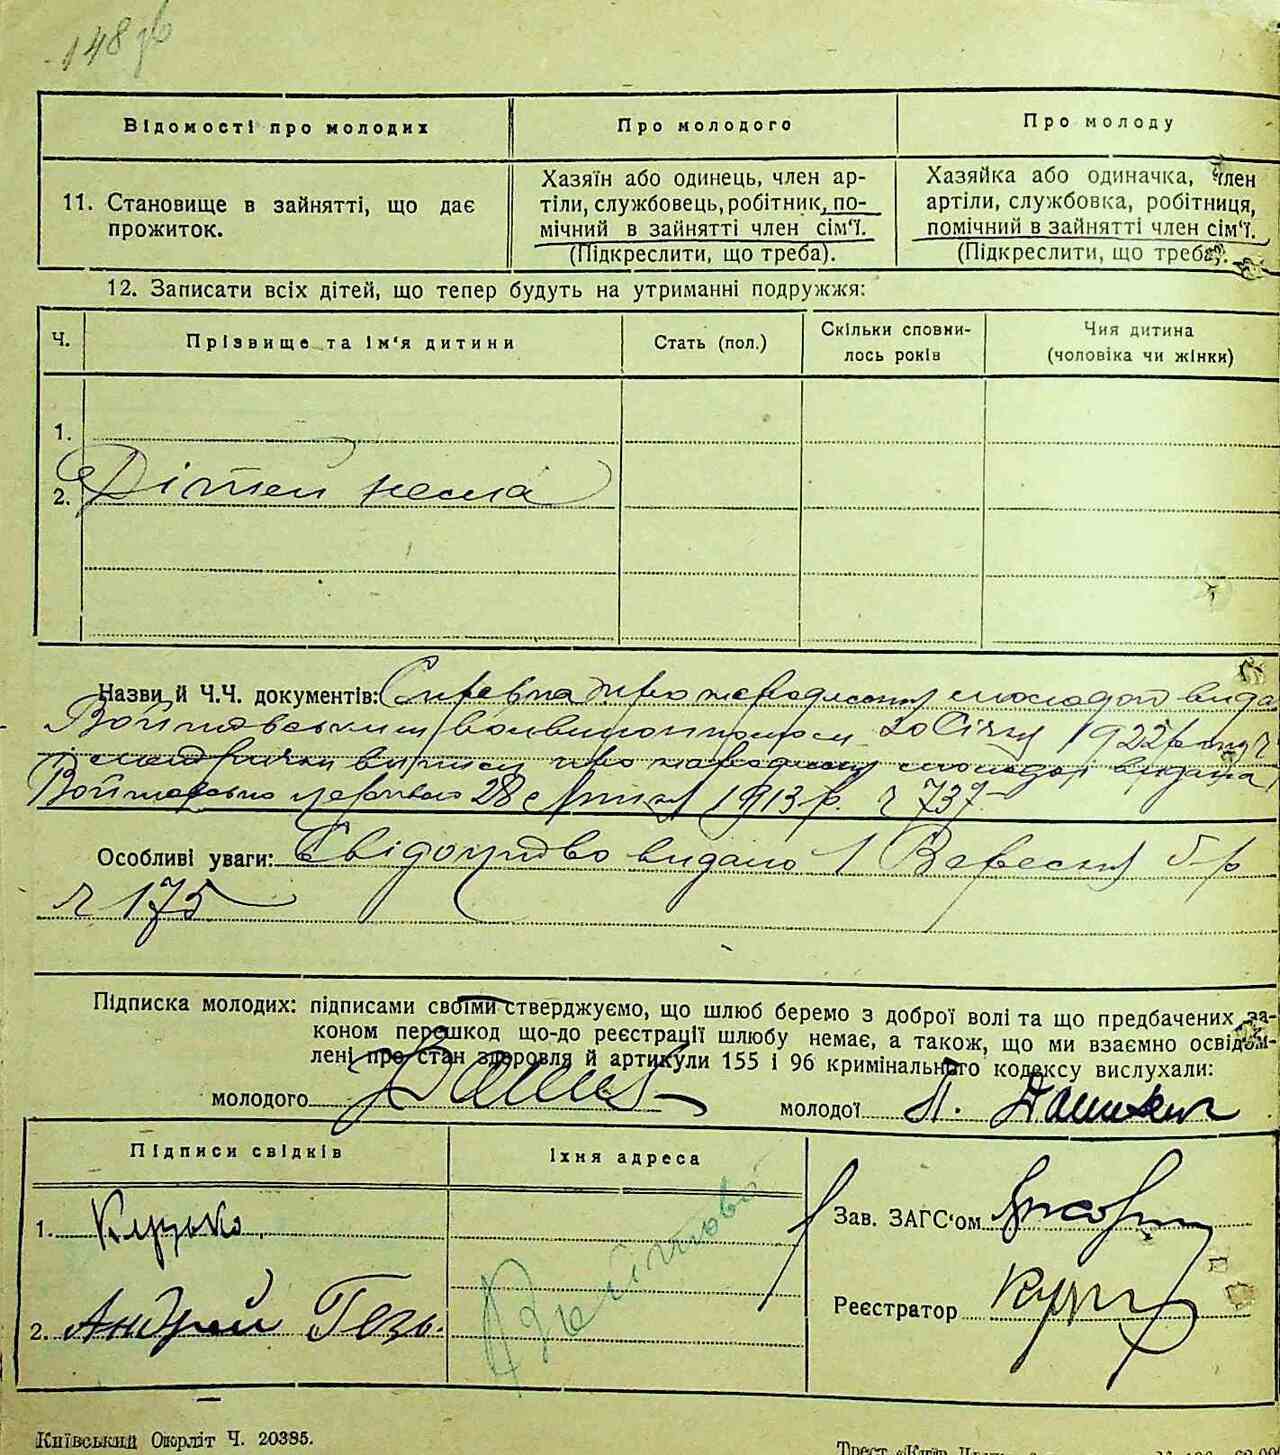 148 зв
Відомості про молодих
Про молодого
Про молоду
11. Становище в зайнятті, що дає
прожиток.
Хазяїн або одинець, член ар-
тіли, службовець, робітник, по-
мічний в зайнятті член сім'ї.
(Підкреслити, що треба).
Хазяйка або одиначка, член
артіли, службовка, робітниця,
помічний в зайнятті член сім'ї.
(Підкреслити, що треба).
12. Записати всіх дітей, що тепер будуть на утриманні подружжя:
Ч.
Прізвище та ім'я дитини
Стать (пол.)
Скільки сповни-
лось років
Чия дитина
(чоловіка чи жінки)
1.
2. Дітей нема
Назви й Ч.Ч. документів: молодої вида
20 Січня 1922 р.
про молодої видана
28 1913 р. ч 737
Особливі уваги: Свідоцтво видано 1 Вересня б-р
ч 175
Підписка молодих: підписами своїми стверджуємо, що шлюб беремо з доброї волі та що предбачених за-
коном перешкод що-до реєстрації шлюбу немає, а також, що ми взаємно освідом-
лені про стан здоровля й артикули 155 і 96 кримінального кодексу вислухали:
молодого
молодої П.
Підписи свідків
Їхня адреса
1.
Зав. ЗАГС'ом
2. Андрей Гезь.
Реєстратор
Київський Окрліт Ч. 20385.